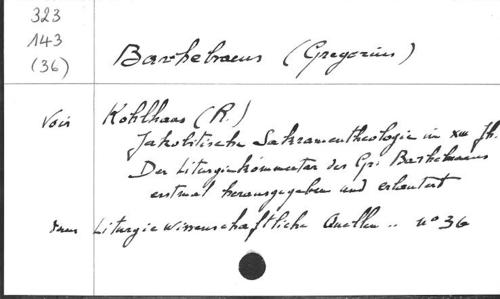 323
143
(36)
Barhebraeus (Gregorius)
Voir Kohlhaas (R.)
Jakobitische Sakramententheologie im XIII Jh.
Der Liturgiekommentar des Gr. Barhebraeus
erstmal herausgegeben und erläutert
dans Liturgiewissenschaftliche Quellen .. n° 36